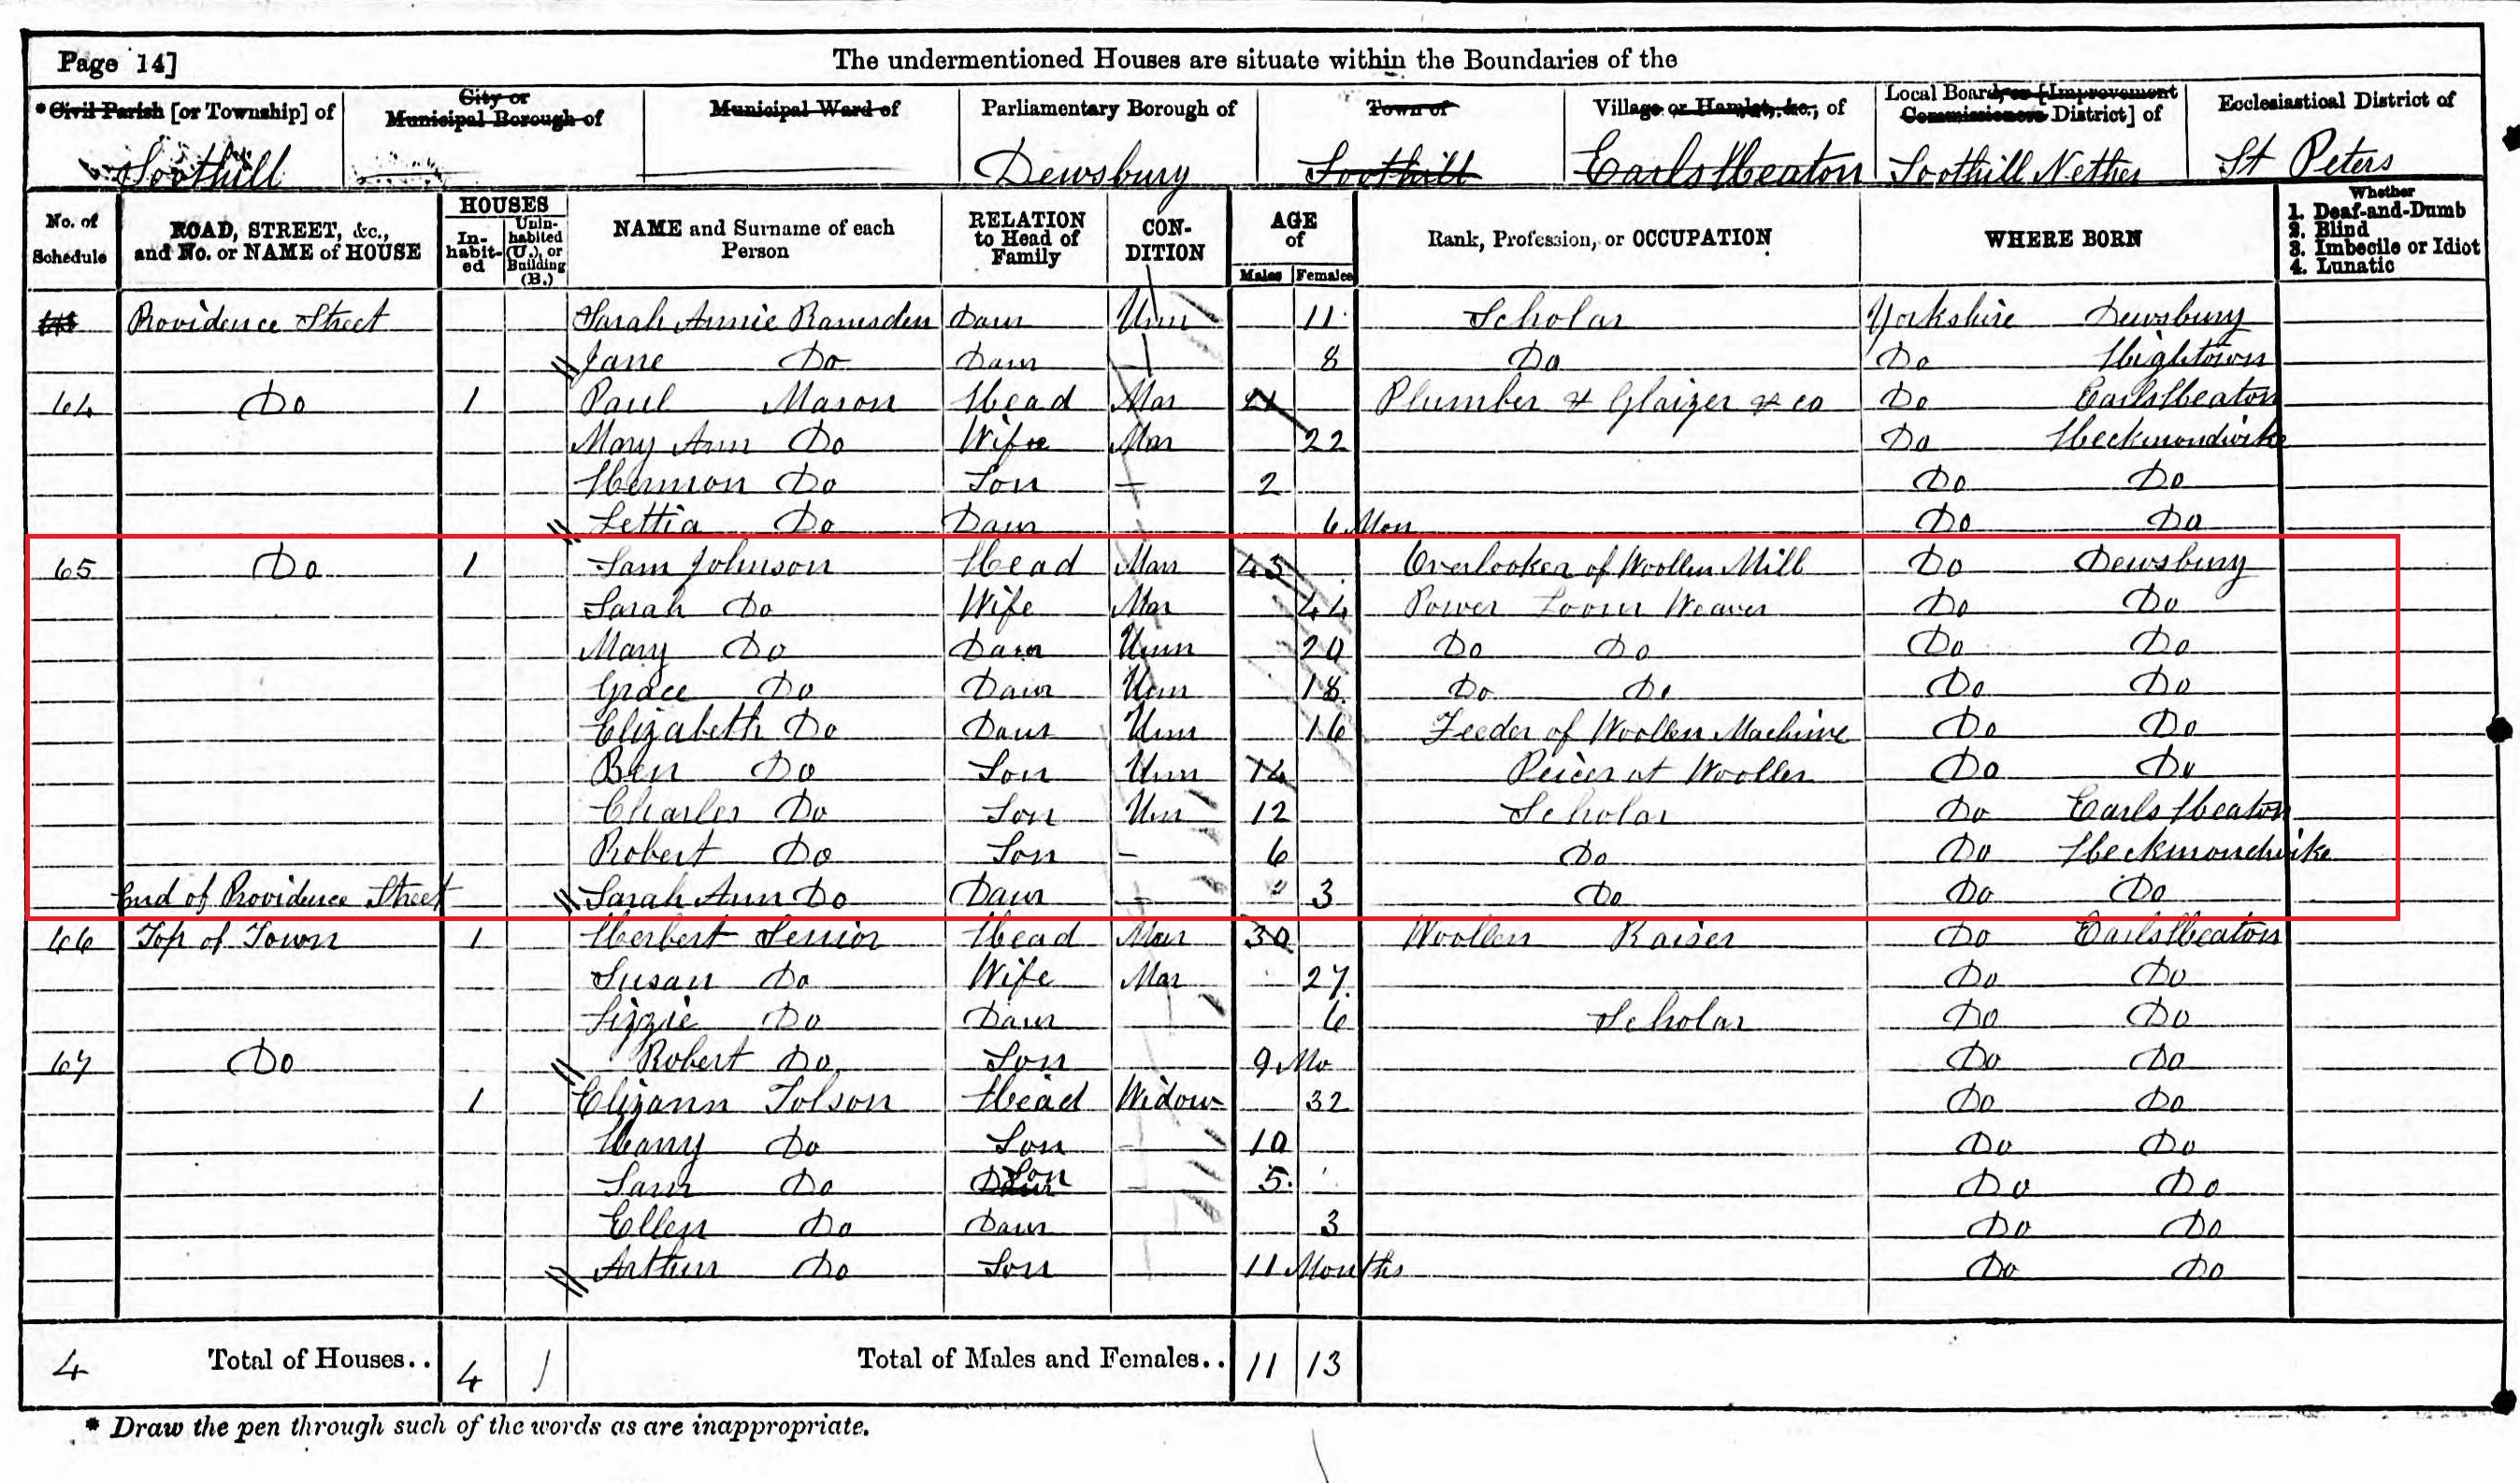 Page 14]
The undermentioned Houses are situate within the Boundaries of the
*Civil Parish [or Township] of
City or Municipal Borough of
Municipal Ward of
Parliamentary Borough of
Town of
Village or Hamlet, &c., of
Local Board, or [Improvement Commissioners District] of
Ecclesiastical District of
Soothill Dewsbury Soothill Earls Heaton Soothill Nether St Peters
No. of Schedule
ROAD, STREET, &c., and No. or NAME of HOUSE
HOUSES
In-habit-ed
Unin-habited (U.), or Building (B.)
NAME and Surname of each Person
RELATION to Head of Family
CON-DITION
AGE of
Males Females
Rank, Profession, or OCCUPATION
WHERE BORN
Whether
1. Deaf-and-Dumb
2. Blind
3. Imbecile or Idiot
4. Lunatic
Providence Street Sarah Annie Ramsden Daur Unm 11 Scholar Yorkshire Dewsbury
Jane Do Daur 8 Do Do Hightown
64 Do 1 Paul Mason Head Mar 21 Plumber & Glaizer & co Do Earls Heaton
Mary Ann Do Wife Mar 22 Do Heckmondwike
Hermon Do Son 2 Do Do
Lettia Do Daur 6 Mon Do Do
65 Do 1 Sam Johnson Head Mar 45 Overlooker of Woollen Mill Do Dewsbury
Sarah Do Wife Mar 44 Power Loom Weaver Do Do
Mary Do Daur Unm 20 Do Do Do Do
Grace Do Daur Unm 18 Do Do Do Do
Elizabeth Do Daur Unm 16 Feeder of Woollen Machine Do Do
Ben Do Son Unm 14 Peicer at Woollen Do Do
Charles Do Son Un 12 Scholar Do Earls Heaton
Robert Do Son 6 Do Do Heckmondwike
End of Providence Street Sarah Ann Do Daur 3 Do Do Do
66 Top of Town 1 Herbert Senior Head Mar 30 Woollen Raiser Do Earls Heaton
Susan Do Wife Mar 27 Do Do
Lizzie Do Daur 6 Scholar Do Do
67 Do Robert Do Son 9 Mo Do Do
1 Elizann Tolson Head Widow 32 Do Do
Harry Do Son 10 Do Do
Sam Do Daur Son 5 Do Do
Ellen Do Daur 3 Do Do
Arthur Do Son 11 Months Do Do
4 Total of Houses.. 4 Total of Males and Females.. 11 13
* Draw the pen through such of the words as are inappropriate.